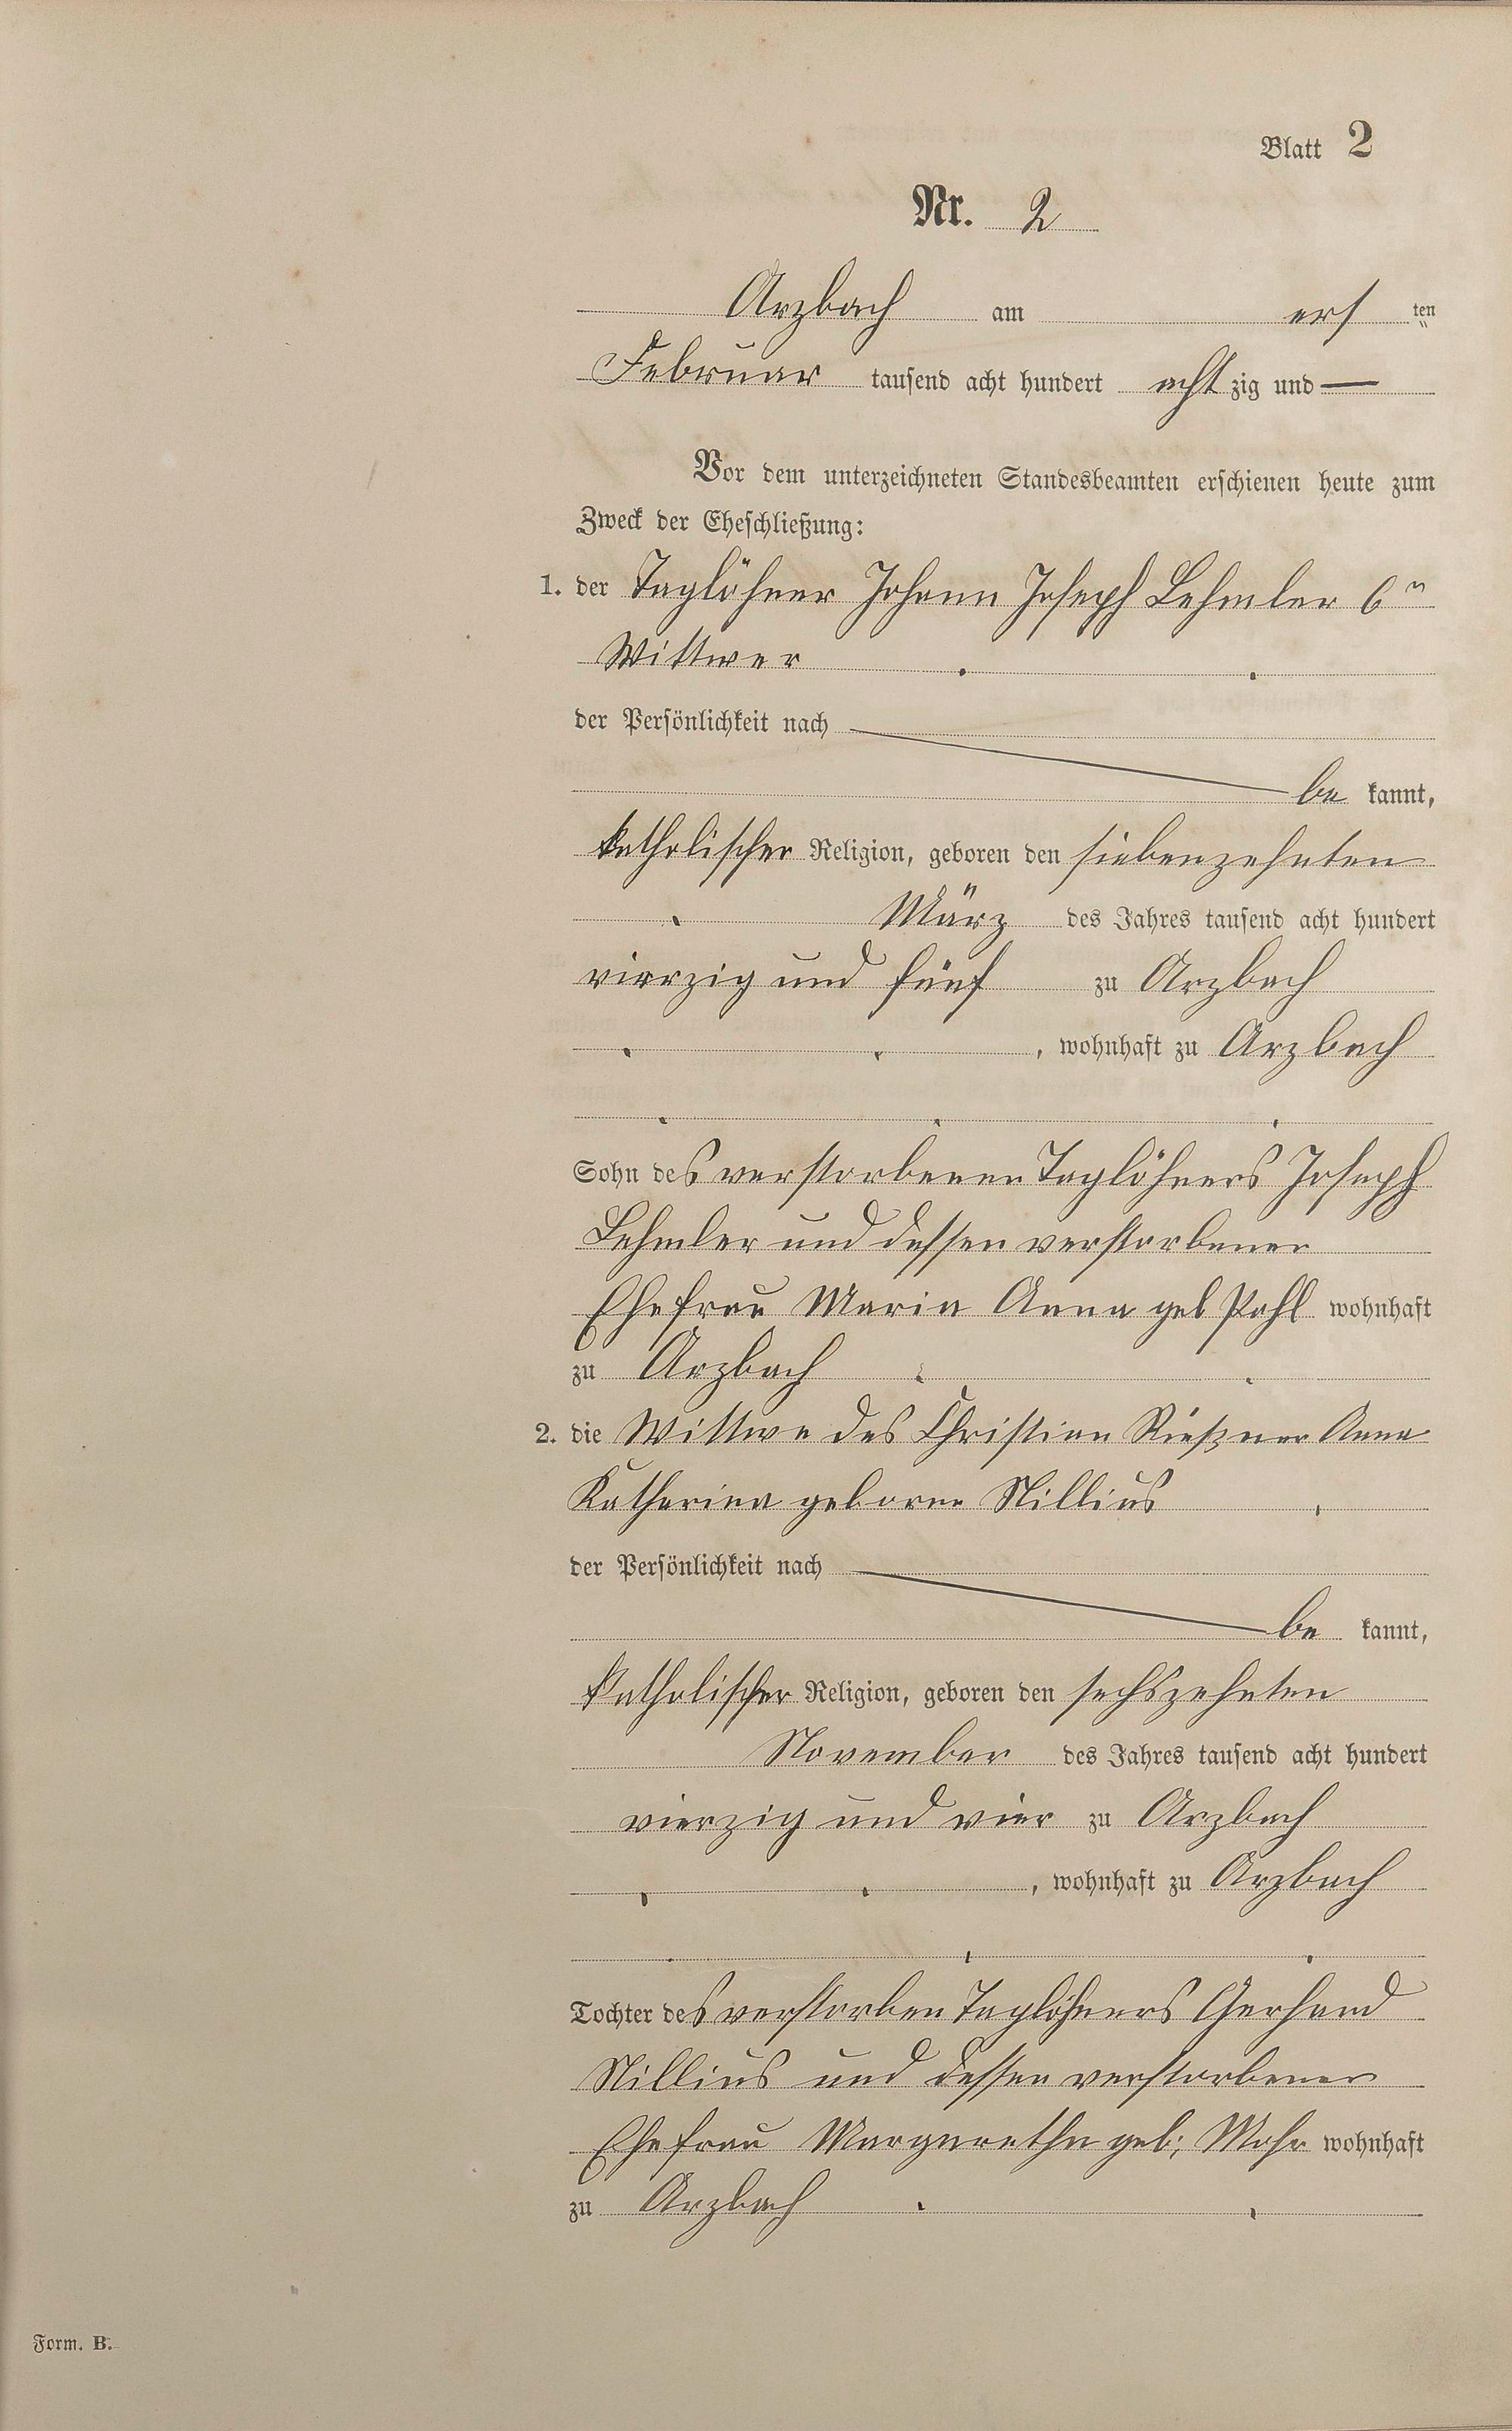 Blatt 2
Nr. 2
Arzbach am ers ten
Februar tausend acht hundert acht zig und —
Vor dem unterzeichneten Standesbeamten erschienen heute zum
Zweck der Eheschließung:
1. der Taglöhner Johann Joseph Lehmler 6n
Wittwer
der Persönlichkeit nach
be kannt,
katholischer Religion, geboren den siebenzehnten
März des Jahres tausend acht hundert
vierzig und fünf zu Arzbach
, wohnhaft zu Arzbach
Sohn des verstorbenen Taglöhners Joseph
Lehmler und dessen verstorbenen
Ehefrau Maria Anna geb Pohl wohnhaft
zu Arzbach
2. die Wittwe des Christian Rießner Anna
Katharina geborne Nillius
der Persönlichkeit nach
be kannt,
katholischer Religion, geboren den sechszehnten
November des Jahres tausend acht hundert
vierzig und vier zu Arzbach
, wohnhaft zu Arzbach
Tochter des verstorben Taglöhners Gerhard
Nillius und dessen verstorbenen
Ehefrau Margaretha geb: Mohr wohnhaft
zu Arzbach
Form. B.